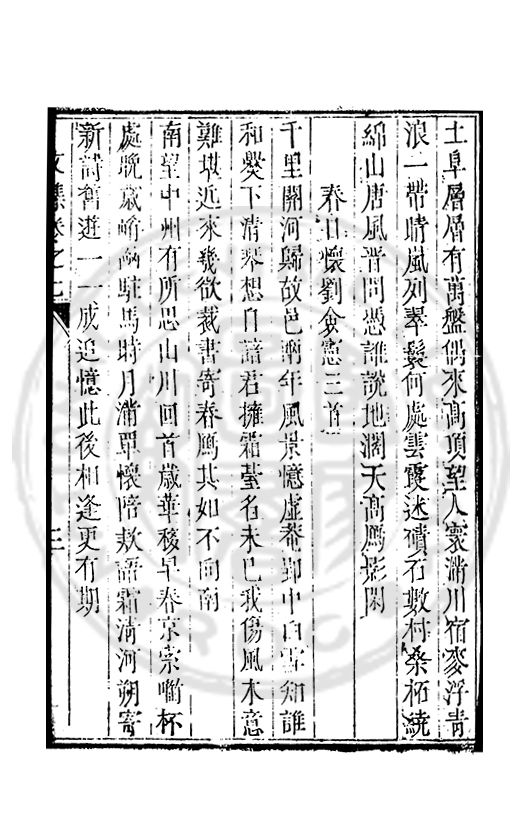 土阜層層有萬盤偶來高頂望人寰滿川宿麥浮青
浪一帶晴嵐列翠鬟何處雲霞迷磧石數村桑柘繞
綿山唐風晉問憑誰說地濶天高鴈影閑
春日懷劉僉憲三首
千里關河歸故邑兩年風景憶虛菴郢中白雪知誰
和爨下清琴想自諳君擁霜臺名未已我傷風木意
難堪近來幾欲裁書寄春鴈其如不向南
南望中州有所思山川回首歲華移早春京崇㘅杯
處晩歲崤凾駐馬時月滿覃懷陪欵語霜清河朔寄
新詩舊遊一一成追憶此後相逢更有期
文集卷之七
三